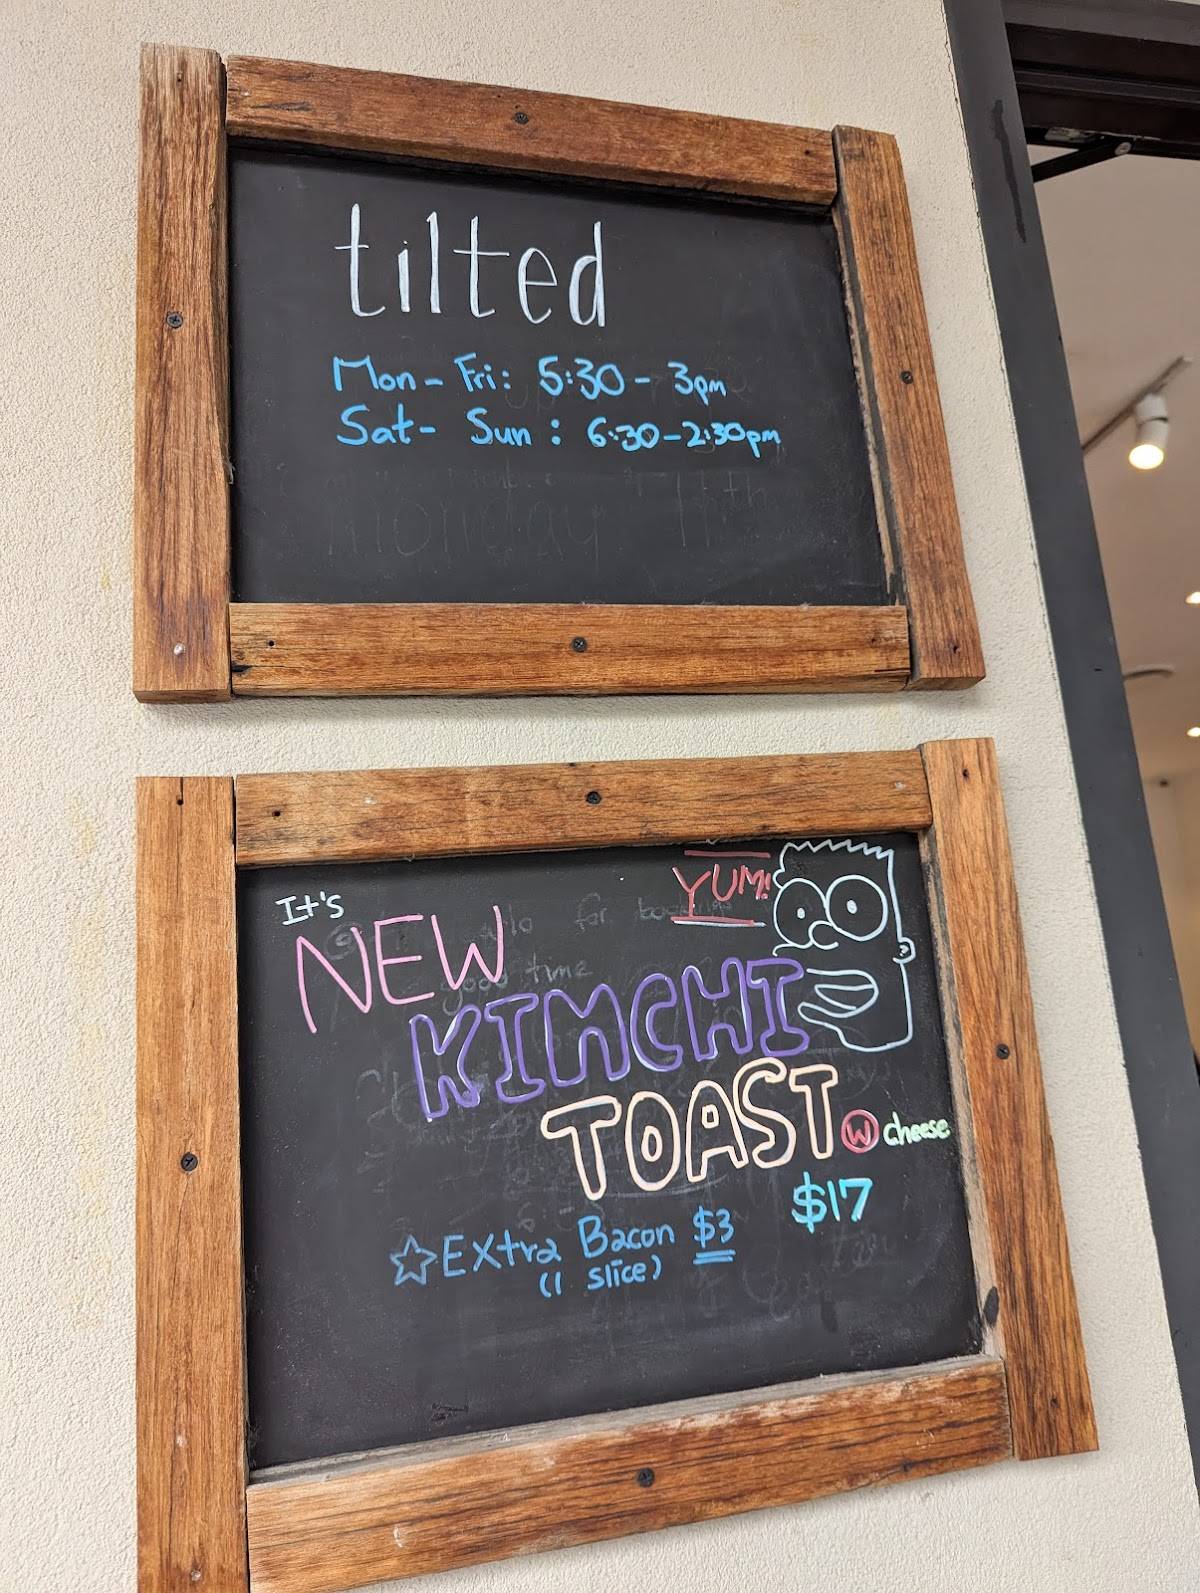 tilted
Mon - Fri: 5:30 - 3pm
Sat - Sun: 6:30 - 2:30pm
It's
YUM!
NEW
KIMCHI
TOAST W cheese
$17
☆ Extra Bacon $3
(1 slice)